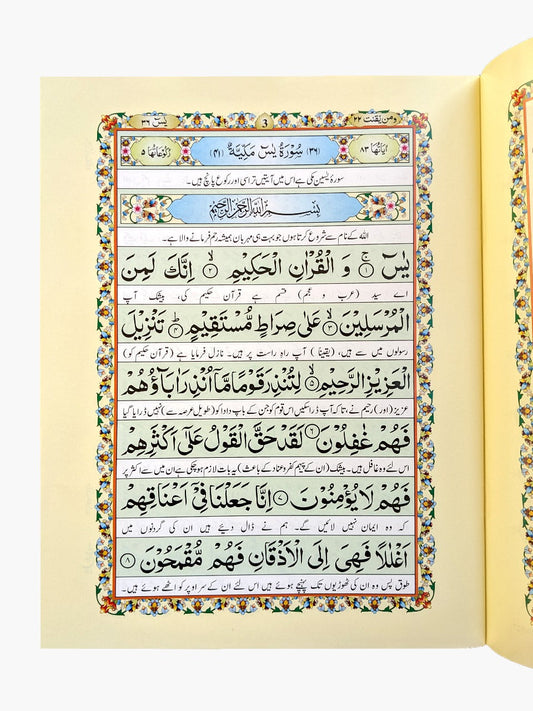 یٰسٓ ۳۶
3
ومن یقنت ۲۲
اٰیَاتُهَا ۸۳
(۳۶) سُوْرَةُ یٰسٓ مَكِّیَّةٌ (۴۱)
رُكُوْعَاتُهَا ۵
سورۂ یٰسین مکی ہے اس میں آیتیں تراسی اور رکوع پانچ ہیں۔
بِسْمِ اللّٰهِ الرَّحْمٰنِ الرَّحِیْمِ
اللہ کے نام سے شروع کرتا ہوں جو بہت ہی مہربان ہمیشہ رحم فرمانے والا ہے۔
یٰسٓ ۚ ۱ وَ الْقُرْاٰنِ الْحَكِیْمِ ۙ ۲ اِنَّكَ لَمِنَ
اے سید (عرب و عجم) قسم ہے قرآن حکیم کی، بیشک آپ
الْمُرْسَلِیْنَ ۙ ۳ عَلٰی صِرَاطٍ مُّسْتَقِیْمٍ ؕ ۴ تَنْزِیْلَ
رسولوں میں سے ہیں، (یقیناً) آپ راہ راست پر ہیں۔ نازل فرمایا ہے (قرآن حکیم کو)
الْعَزِیْزِ الرَّحِیْمِ ۙ ۵ لِتُنْذِرَ قَوْمًا مَّاۤ اُنْذِرَ اٰبَآؤُهُمْ
عزیز (اور) رحیم نے، تاکہ آپ ڈرائیں اس قوم کو جن کے باپ دادا کو (طویل عرصہ سے) نہیں ڈرایا گیا
فَهُمْ غٰفِلُوْنَ ۶ لَقَدْ حَقَّ الْقَوْلُ عَلٰۤی اَكْثَرِهِمْ
اس لئے وہ غافل ہیں۔ بیشک (ان کے پیہم کفر و عناد کے باعث) یہ بات لازم ہو چکی ہے ان میں سے اکثر پر
فَهُمْ لَا یُؤْمِنُوْنَ ۷ اِنَّا جَعَلْنَا فِیْۤ اَعْنَاقِهِمْ
کہ وہ ایمان نہیں لائیں گے۔ ہم نے ڈال دیئے ہیں ان کی گردنوں میں
اَغْلٰلًا فَهِیَ اِلَی الْاَذْقَانِ فَهُمْ مُّقْمَحُوْنَ ۸
طوق پس وہ ان کی ٹھوڑیوں تک پہنچے ہوئے ہیں اس لئے ان کے سر اوپر کو اٹھے ہوئے ہیں۔